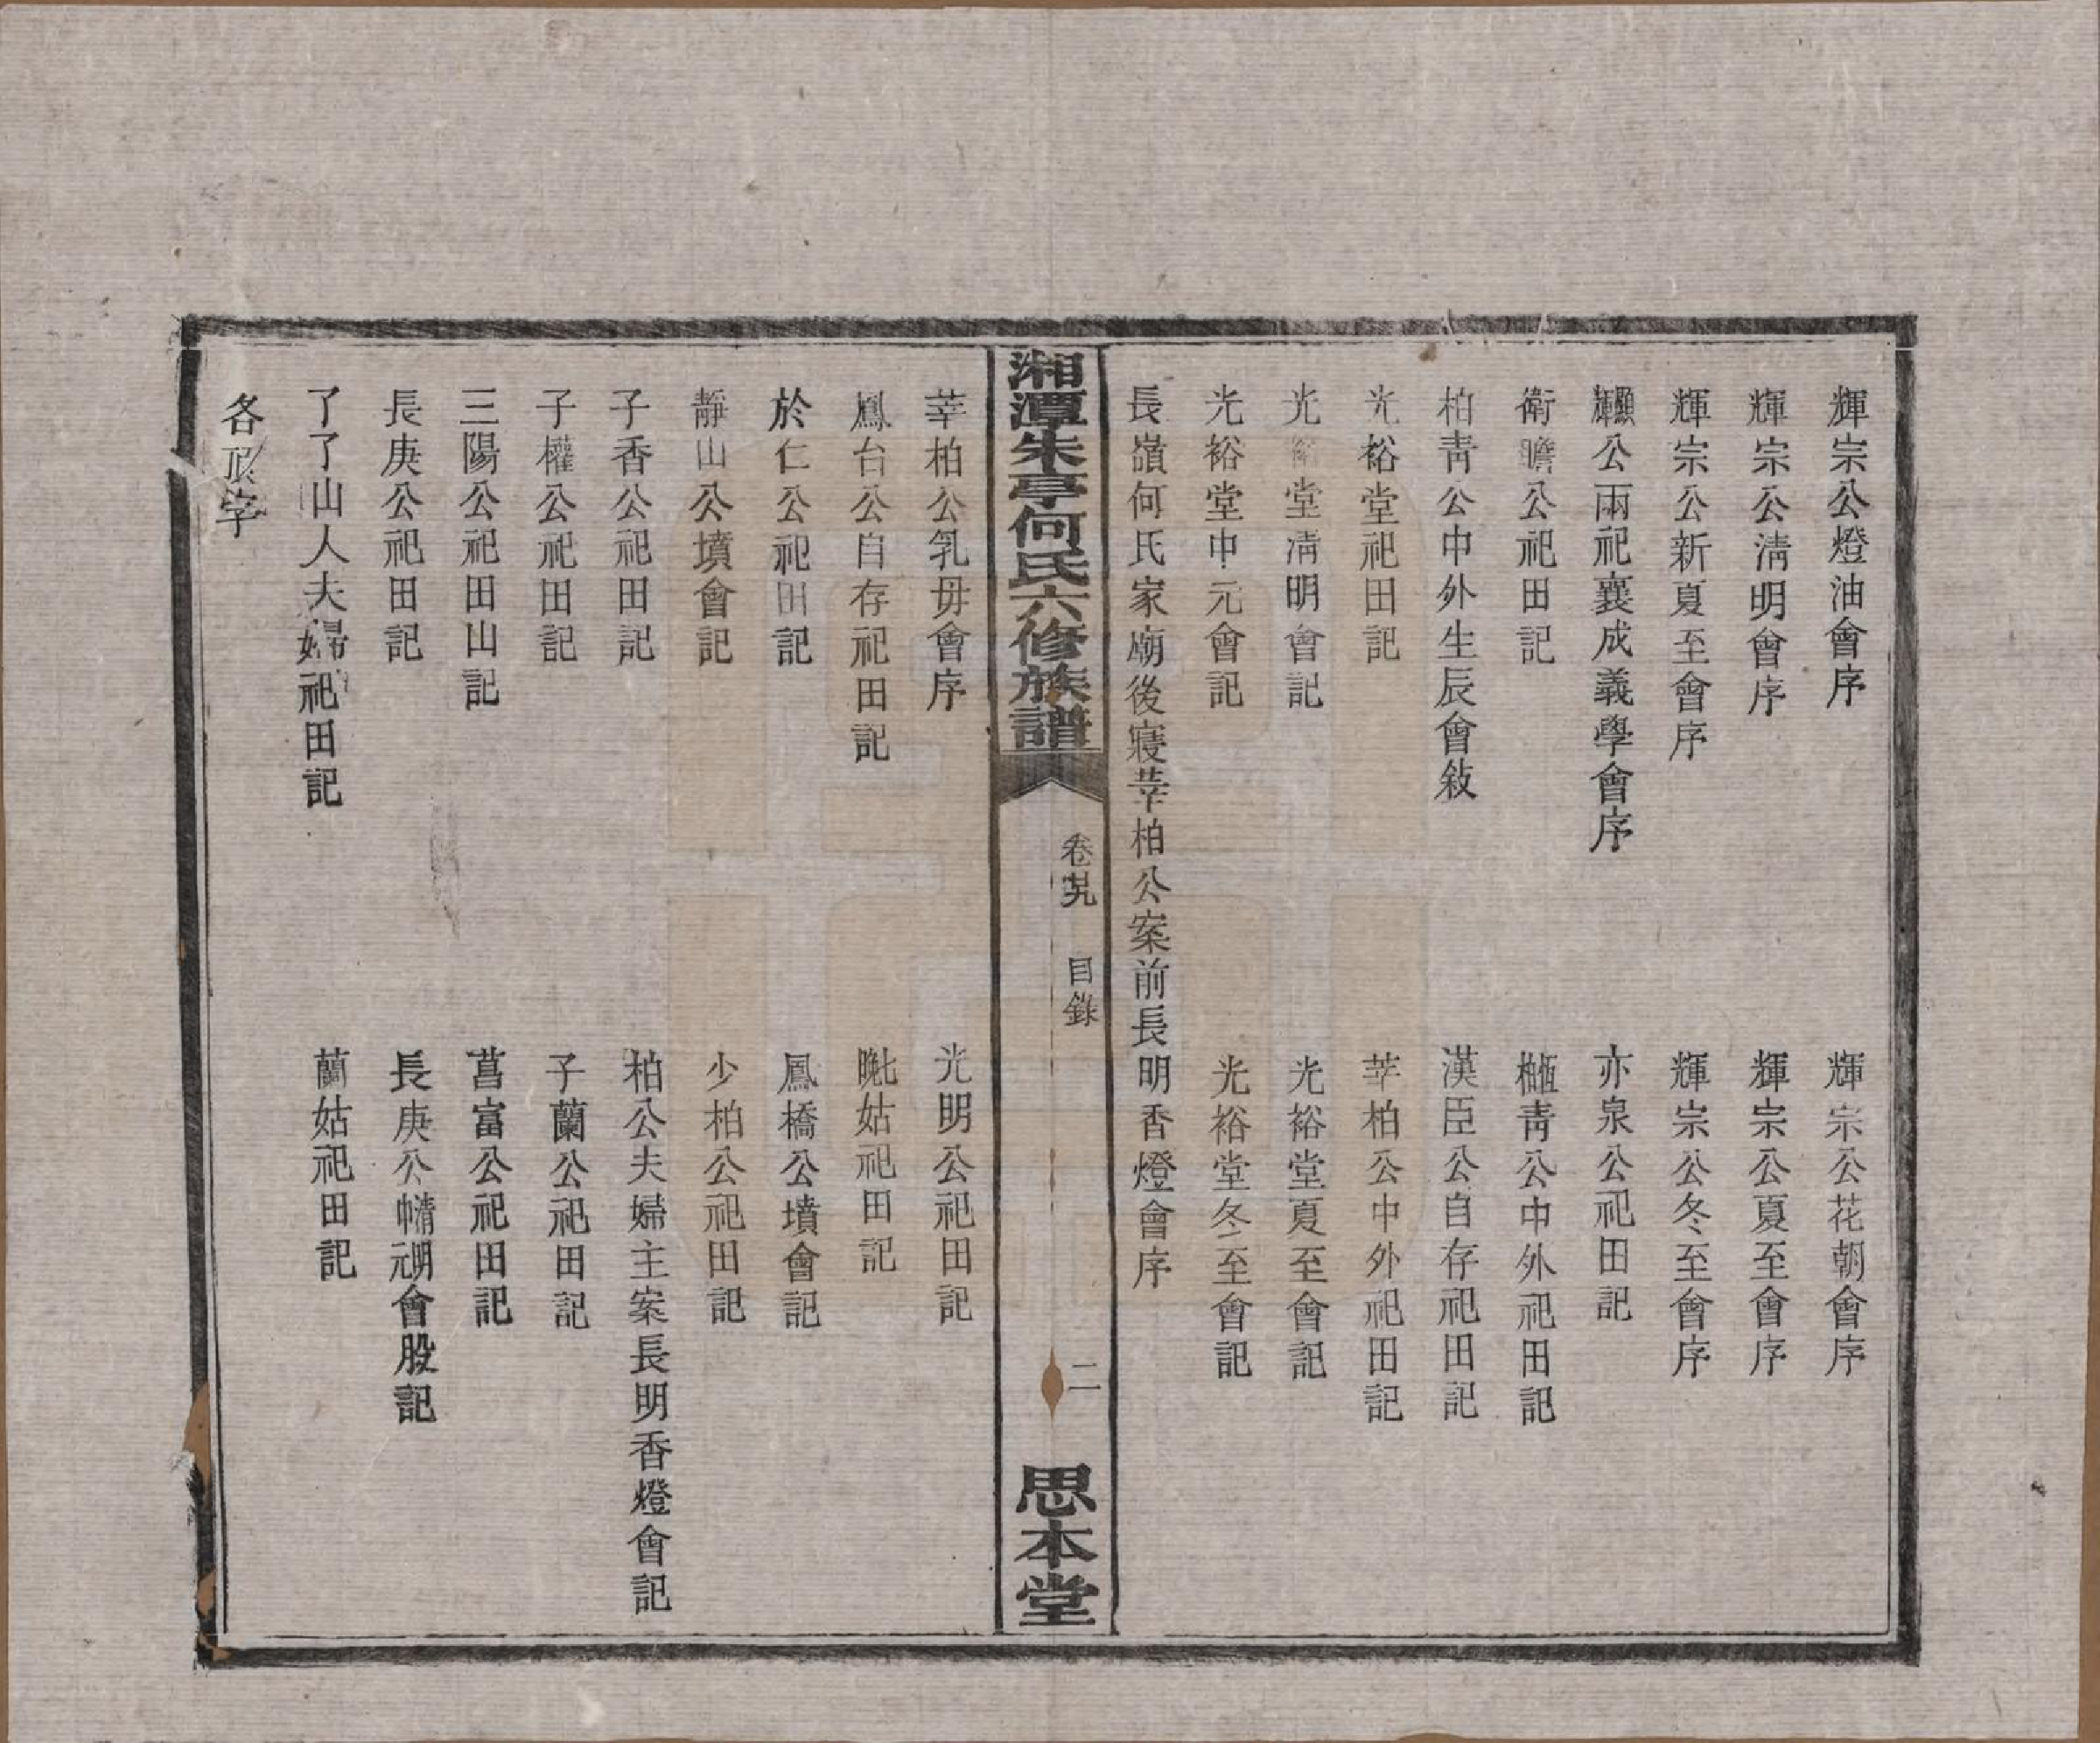 輝宗公燈油會序
輝宗公花朝會序
輝宗公淸明會序
輝宗公夏至會序
輝宗公新夏至會序
輝宗公冬至會序
公兩祀襄成義學會序
亦泉公祀田記
衛瞻公祀田記
青公中外祀田記
柏靑公中外生辰會敘
漢臣公自存祀田記
光裕堂祀田記
莘柏公中外祀田記
光裕堂淸明會記
光裕堂夏至會記
光裕堂中元會記
光裕堂冬至會記
長嶺何氏家廟後寢莘柏公案前長明香燈會序
湘潭朱亭何氏六修族譜
卷廿九 目錄
二
思本堂
莘柏公乳毋會序
光明公祀田記
鳳台公自存祀田記
姑祀田記
於仁公祀田記
鳳橋公墳會記
靜山公墳會記
少柏公祀田記
子香公祀田記
柏公夫婦主案長明香燈會記
子權公祀田記
子蘭公祀田記
三陽公祀田山記
菖富公祀田記
長庚公祀田記
長庚公會股記
了了山人夫婦祀田記
蘭姑祀田記
各字